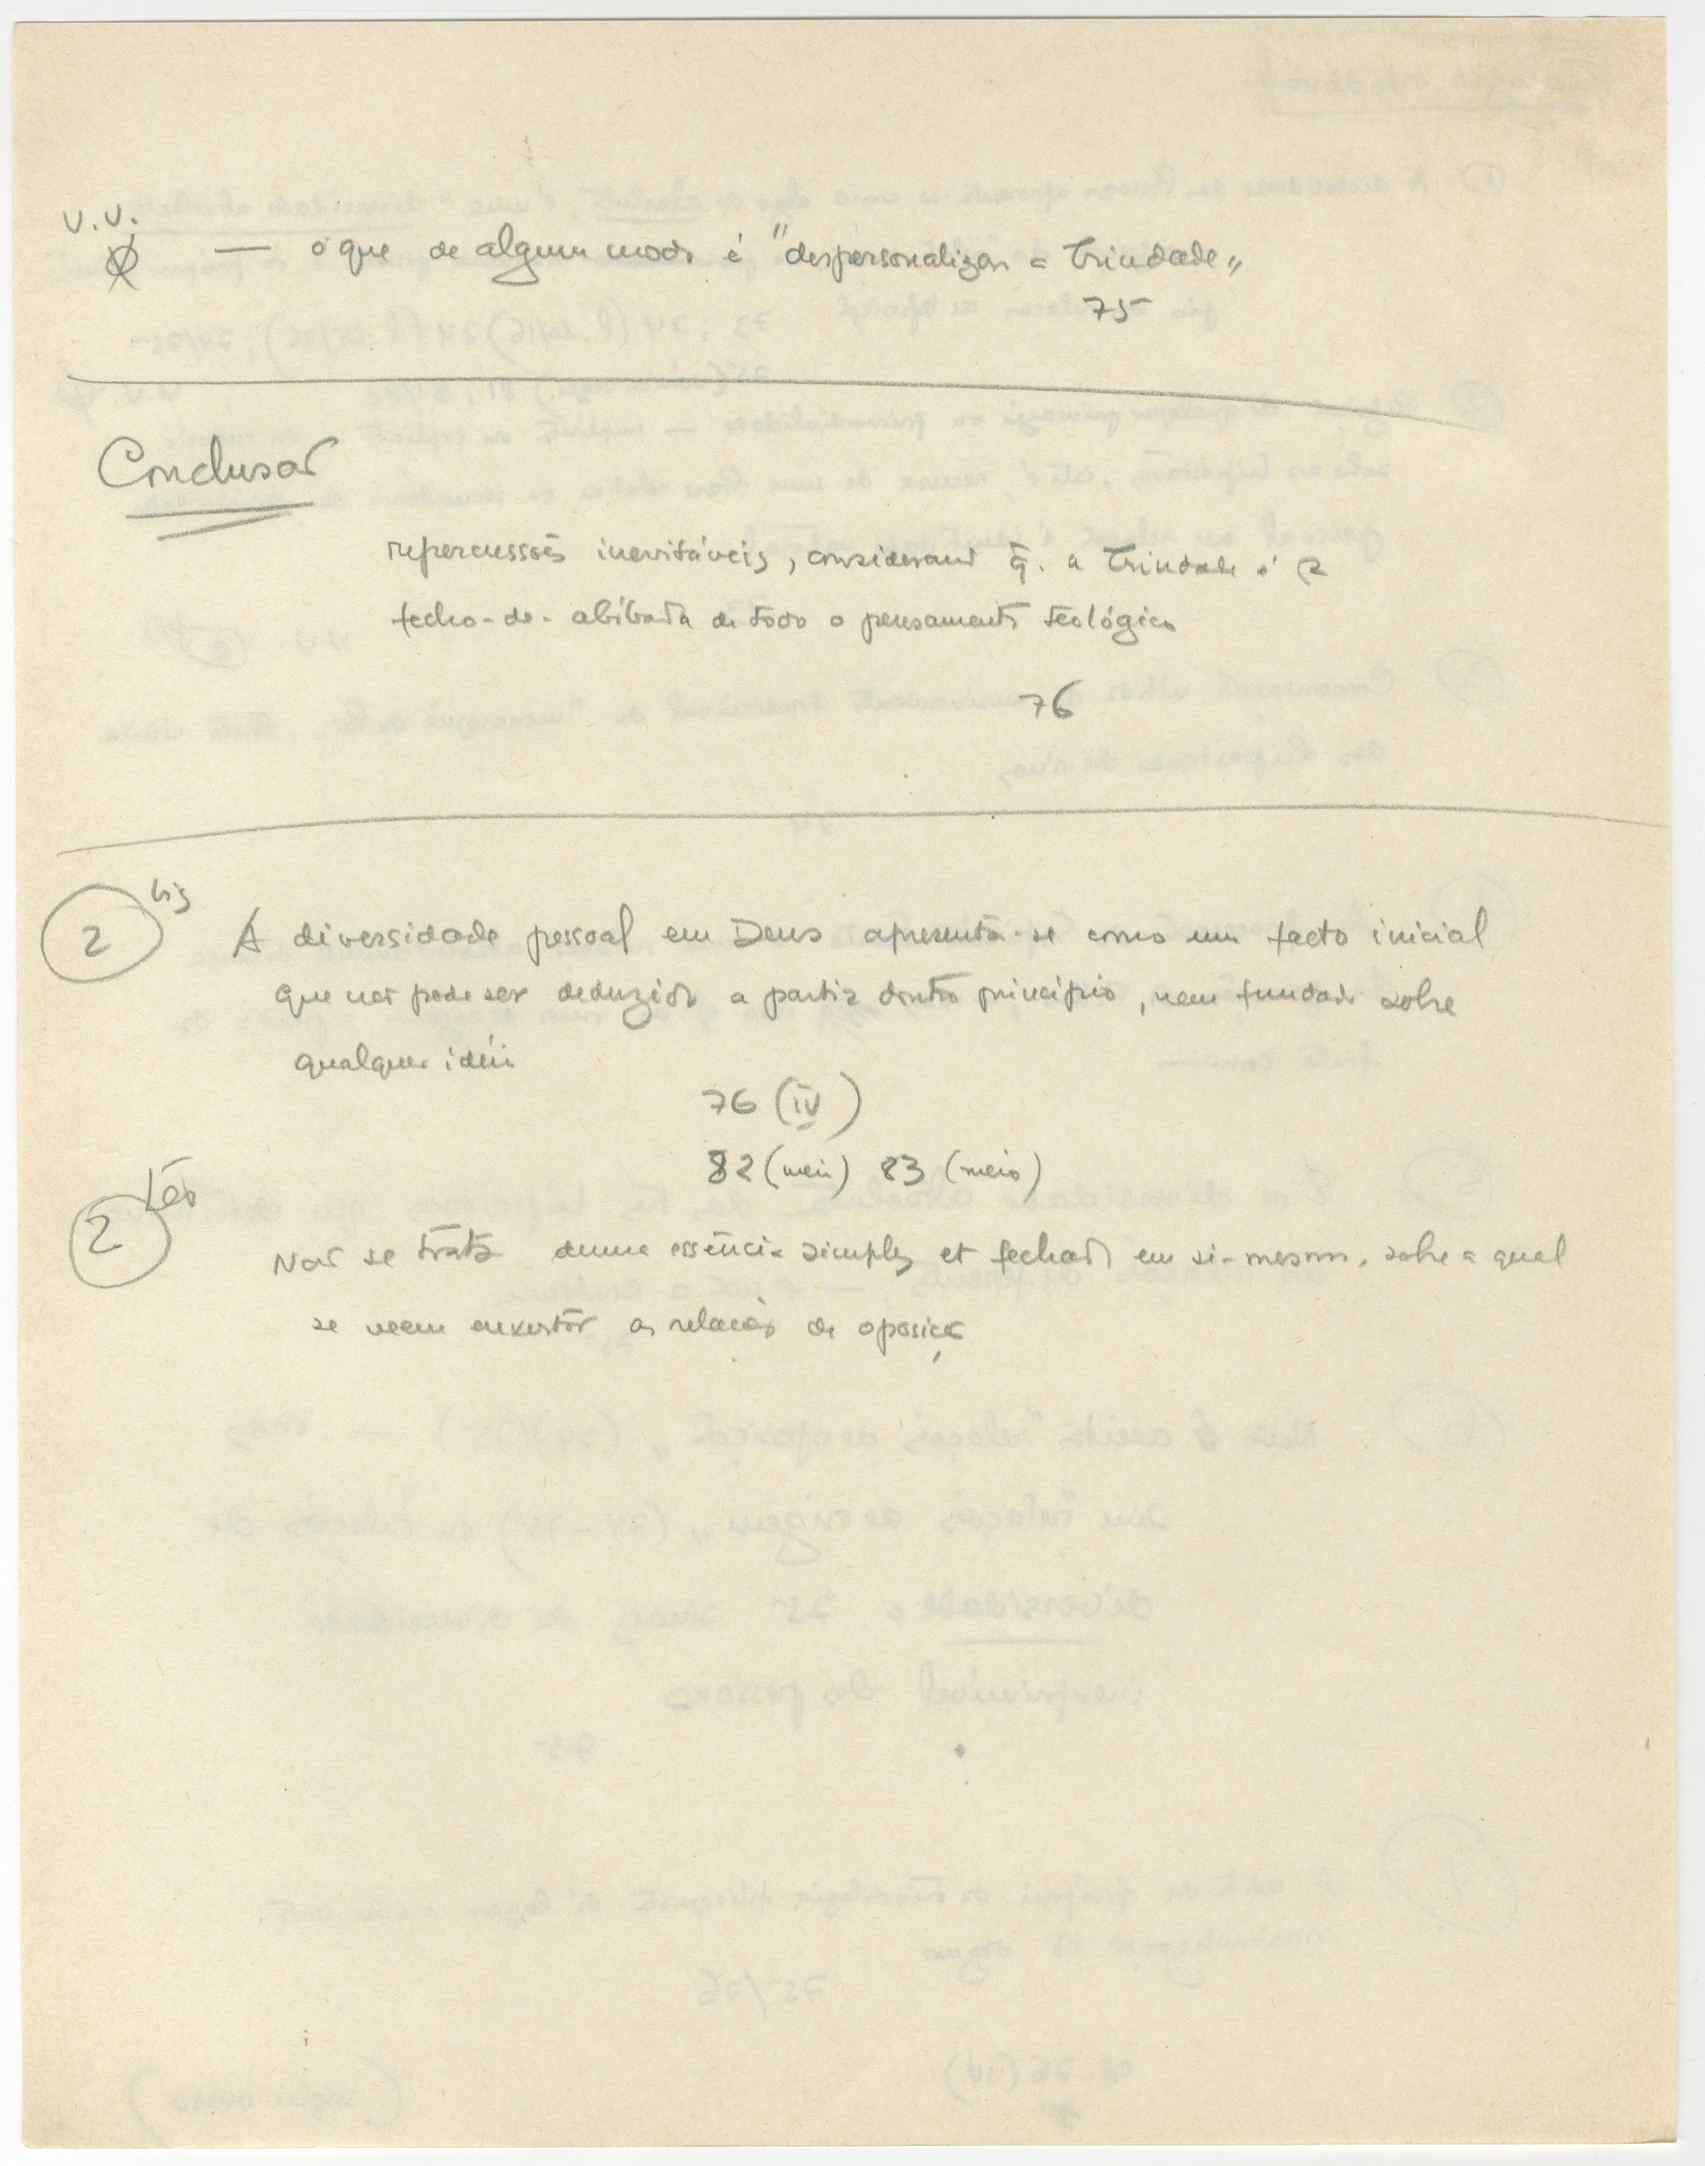 V.V.
— o que de algum modo é "despersonalizar a Trindade"
75
Conclusão
repercussões inevitáveis, considerando q̃. a Trindade é o
fecho-de-abóbada de todo o pensamento teológico
76
2 bis
A diversidade pessoal em Deus apresenta-se como um facto inicial
que não pode ser deduzido a partir doutro princípio, nem fundado sobre
qualquer idéia
76 (IV)
82 (meio) 83 (meio)
2
Não se trata duma essência simples et fechada em si-mesma, sobre a qual
se veem enxertar as relações de oposição